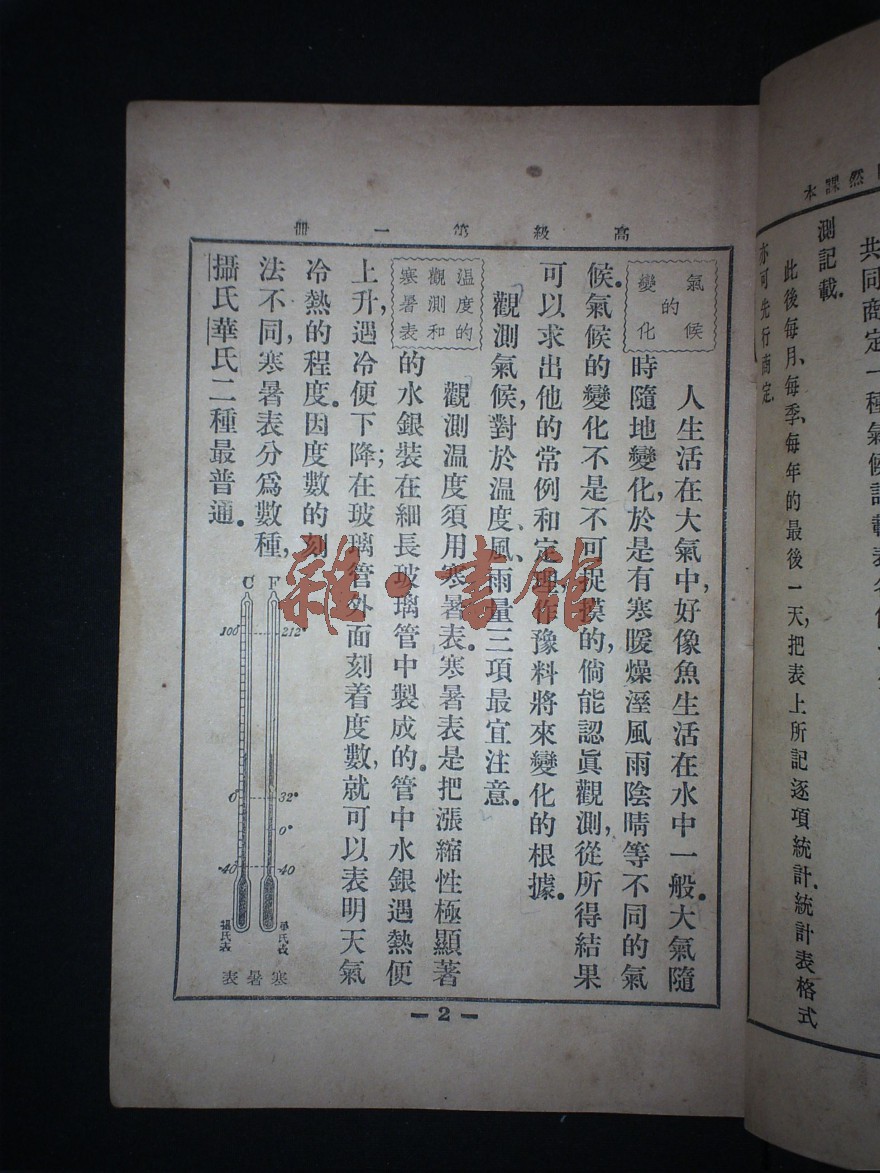 然課本
共同商定一種氣候記載表
測記載.
此後每月、每季、每年的最後一天,把表上所記逐項統計.統計表格式
亦可先行商定.
高級第一冊
氣候
的
變化
人生活在大氣中,好像魚生活在水中一般.大氣隨
時隨地變化,於是有寒暖燥溼風雨陰晴等不同的氣
候.氣候的變化不是不可捉摸的,倘能認眞觀測,從所得結果
可以求出他的常例和定理,作豫料將來變化的根據.
觀測氣候,對於溫度、風、雨量三項最宜注意.
溫度的
觀測和
寒暑表
觀測溫度須用寒暑表.寒暑表是把漲縮性極顯著
的水銀裝在細長玻璃管中製成的.管中水銀遇熱便
上升,遇冷便下降;在玻璃管外面刻着度數,就可以表明天氣
冷熱的程度.因度數的刻
法不同,寒暑表分爲數種,
攝氏華氏二種最普通.
C F
100 212°
0 32°
0°
-40 -40
攝氏表
華氏表
寒暑表
- 2 -
雜·書館